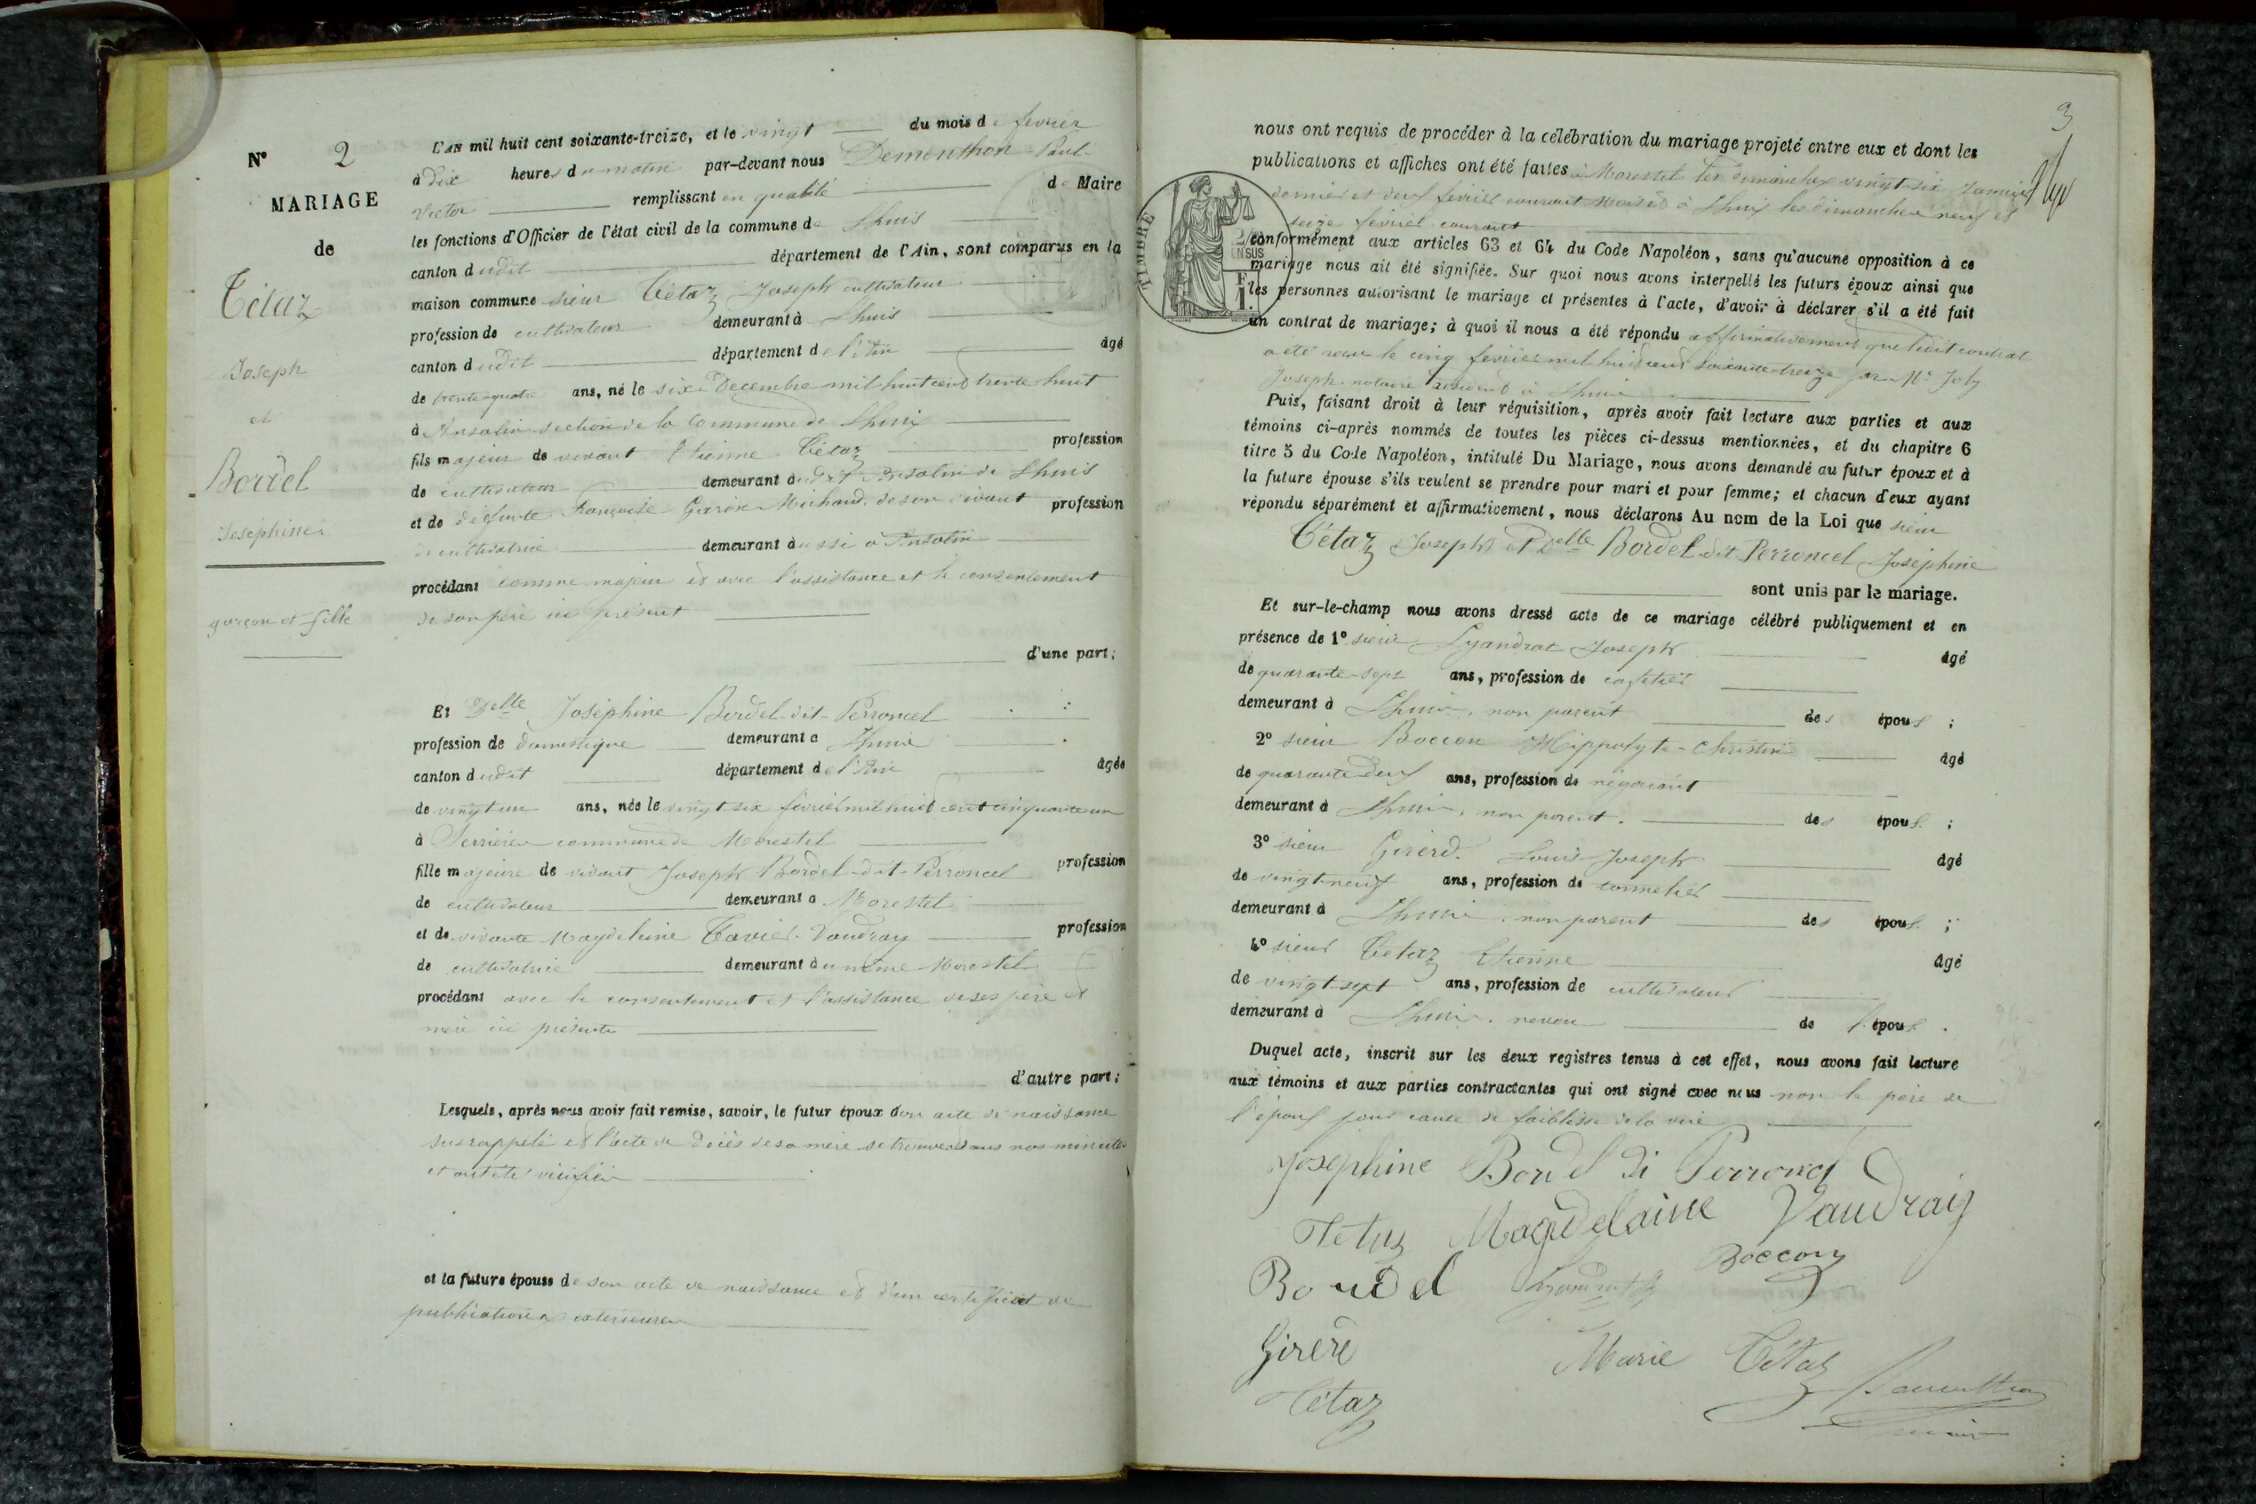 N° 2
MARIAGE
de
Tétaz
Joseph
et
Bordel
Joséphine
garçon et fille
L'AN mil huit cent soixante-treize, et le vingt du mois de fevrier
à dix heures du matin par-devant nous Demonthon Paul
Victor remplissant en qualité de Maire
les fonctions d'Officier de l'état civil de la commune de Lhuis
canton dudit département de l'Ain, sont comparus en la
maison commune sieur Tétaz Joseph cultivateur
profession de cultivateur demeurant à Lhuis
canton dudit département de l'Ain âgé
de trente-quatre ans, né le six Decembre mil huit cent trente huit
à Ansolin section de la Commune de Lhuis
fils majeur de vivant Etienne Tétaz profession
de cultivateur demeurant audit Ansolin de Lhuis
et de défunte Françoise Garon Michaud de son vivant profession
de cultivatrice demeurant aussi à Ansolin
procédant comme majeur et avec l'assistance et le consentement
de son père ici présent
d'une part;
Et Delle Joséphine Bordel dit Perroncel
profession de domestique demeurant à Lhuis
canton dudit département de l'Ain âgée
de vingt un ans, née le vingt six février mil huit cent cinquante un
à Serrières commune de Morestel
fille majeure de vivant Joseph Bordel-dit-Perroncel profession
de cultivateur demeurant à Morestel
et de vivante Magdeleine Tavier Vaudray profession
de cultivatrice demeurant au même Morestel
procédant avec le consentement et l'assistance de ses père et
mère ici présents
d'autre part;
Lesquels, après nous avoir fait remise, savoir, le futur époux son acte de naissance
susrappelé et l'acte de décès de sa mère se trouvent dans nos minutes
et ont été vérifiés
et la future épouse de son acte de naissance et d'un certificat de
publications extérieures
3
nous ont requis de procéder à la célébration du mariage projeté entre eux et dont les
publications et affiches ont été faites à Morestel les dimanches vingt-six Janvier
dernier et deux fevrier courant à Lhuis les dimanches neuf et
seize fevrier courant
TIMBRE
conformément aux articles 63 et 64 du Code Napoléon, sans qu'aucune opposition à ce
mariage nous ait été signifiée. Sur quoi nous avons interpellé les futurs époux ainsi que
les personnes autorisant le mariage et présentes à l'acte, d'avoir à déclarer s'il a été fait
un contrat de mariage; à quoi il nous a été répondu affirmativement que ledit contrat
a été reçu le cinq fevrier mil huit cent soixante-treize par Me Joly
Joseph notaire résident à Lhuis
Puis, faisant droit à leur réquisition, après avoir fait lecture aux parties et aux
témoins ci-après nommés de toutes les pièces ci-dessus mentionnées, et du chapitre 6
titre 5 du Code Napoléon, intitulé Du Mariage, nous avons demandé au futur époux et à
la future épouse s'ils veulent se prendre pour mari et pour femme; et chacun d'eux ayant
répondu séparément et affirmativement, nous déclarons Au nom de la Loi que sieur
Tétaz Joseph et Delle Bordel dit Perroncel Joséphine
sont unis par le mariage.
Et sur-le-champ nous avons dressé acte de ce mariage célébré publiquement et en
présence de 1° sieur Lyandrat Joseph âgé
de quarante-sept ans, profession de cafetier
demeurant à Lhuis, non parent des époux ;
2° sieur Boccon Hippolyte-Christin âgé
de quarante deux ans, profession de négociant
demeurant à Lhuis, non parent. des époux ;
3° sieur Girerd Louis-Joseph âgé
de vingt-neuf ans, profession de tonnelier
demeurant à Lhuis, non parent des époux ;
4° sieur Tétaz Etienne âgé
de vingt-sept ans, profession de cultivateur
demeurant à Lhuis, neveu de l'époux.
Duquel acte, inscrit sur les deux registres tenus à cet effet, nous avons fait lecture
aux témoins et aux parties contractantes qui ont signé avec nous non le père de
l'époux pour cause de faiblesse de la vue
Josephine Bordel di Perroncel
Tetaz Magdelaine Vaudray
Bordel Lyandrat Boccon
Girerd Marie Tétaz
Tétaz Demonthon
maire